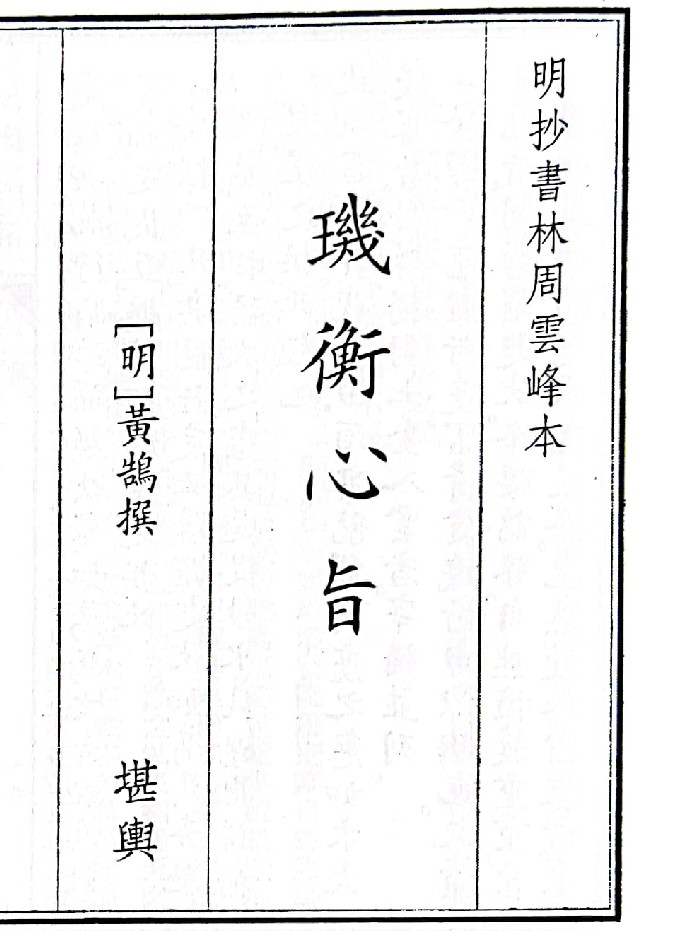 明抄書林周雲峰本
璣衡心旨
［明］黃鵠撰
堪輿